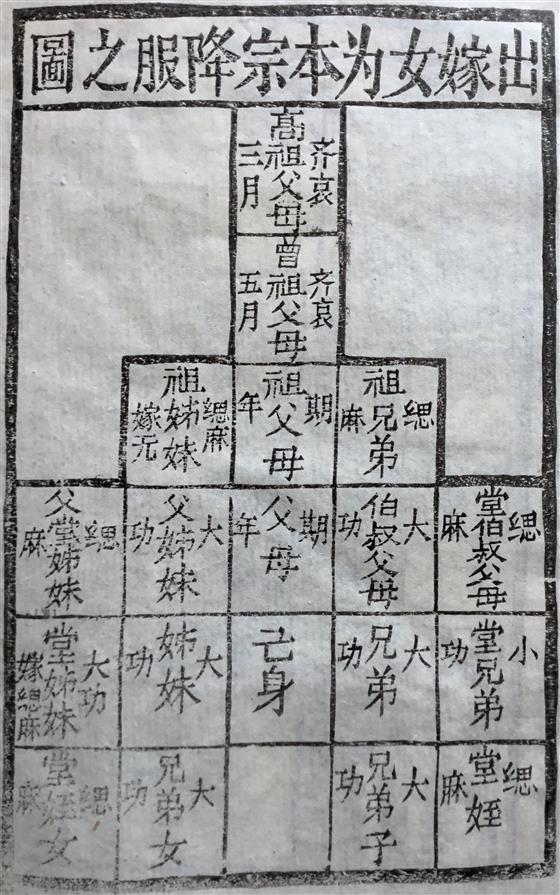 出嫁女为本宗降服之圖
高祖父母 齐衰三月
曾祖父母 齐衰五月
祖兄弟 緦麻
祖父母 期年
祖姊妹 緦麻 嫁无
堂伯叔父母 緦麻
伯叔父母 大功
父母 期年
父姊妹 大功
父堂姊妹 緦麻
堂兄弟 小功
兄弟 大功
己身
姊妹 大功
堂姊妹 大功 嫁緦麻
堂姪 緦麻
兄弟子 大功
兄弟女 大功
堂姪女 緦麻